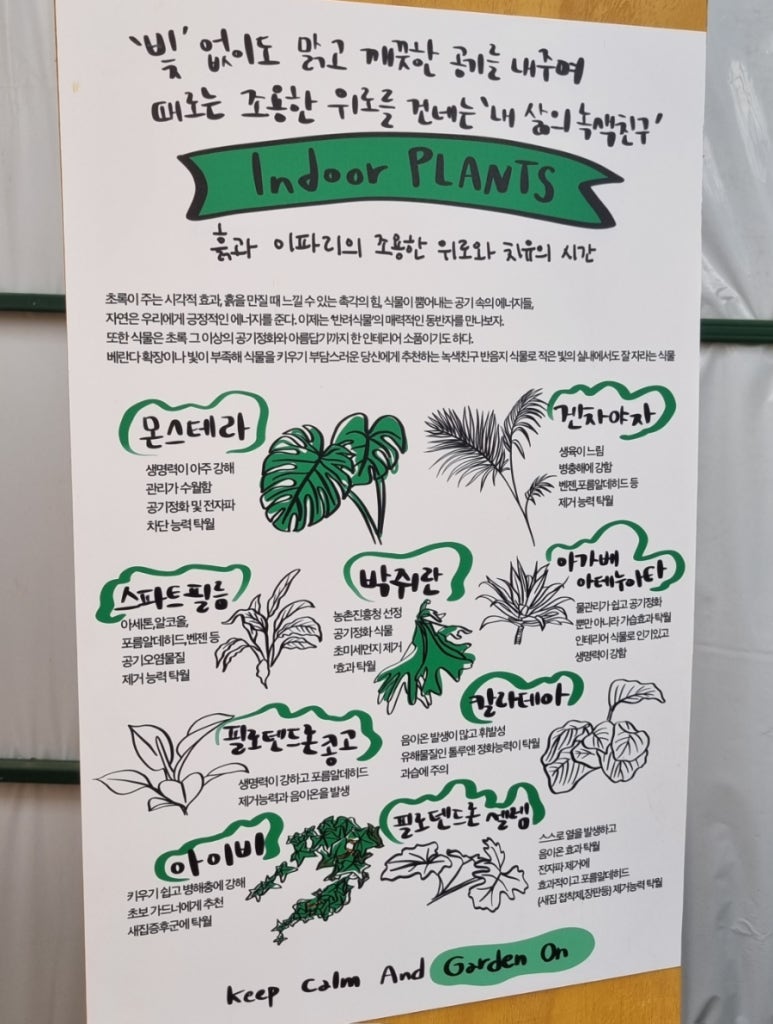 '빛' 없이도 맑고 깨끗한 공기를 내주며
때로는 조용한 위로를 건네는 '내 삶의 녹색친구'
Indoor PLANTS
흙과 이파리의 조용한 위로와 치유의 시간
초록이 주는 시각적 효과, 흙을 만질 때 느낄 수 있는 촉각의 힘, 식물이 뿜어내는 공기 속의 에너지들,
자연은 우리에게 긍정적인 에너지를 준다. 이제는 '반려식물'의 매력적인 동반자를 만나보자.
또한 식물은 초록 그 이상의 공기정화와 아름답기까지 한 인테리어 소품이기도 하다.
베란다 확장이나 빛이 부족해 식물을 키우기 부담스러운 당신에게 추천하는 녹색친구 반음지 식물로 적은 빛의 실내에서도 잘 자라는 식물
몬스테라
생명력이 아주 강해
관리가 수월함
공기정화 및 전자파
차단 능력 탁월
겐차야자
생육이 느림
병충해에 강함
벤젠,포름알데히드 등
제거 능력 탁월
스파트필름
아세톤,알코올,
포름알데히드,벤젠 등
공기오염물질
제거 능력 탁월
박쥐란
농촌진흥청 선정
공기정화 식물
초미세먼지 제거
'효과 탁월
아가베
아테누아타
물관리가 쉽고 공기정화
뿐만 아니라 가습효과 탁월
인테리어 식물로 인기있고
생명력이 강함
필로덴드론
콩고
생명력이 강하고 포름알데히드
제거능력과 음이온을 발생
칼라데아
음이온 발생이 많고 휘발성
유해물질인 톨루엔 정화능력이 탁월
과습에 주의
아이비
키우기 쉽고 병해충에 강해
초보 가드너에게 추천
새집증후군에 탁월
필로덴드론 셀렘
스스로 열을 발생하고
음이온 효과 탁월
전자파 제거에
효과적이고 포름알데히드
(새집 접착제,장판등) 제거능력 탁월
Keep Calm And Garden On